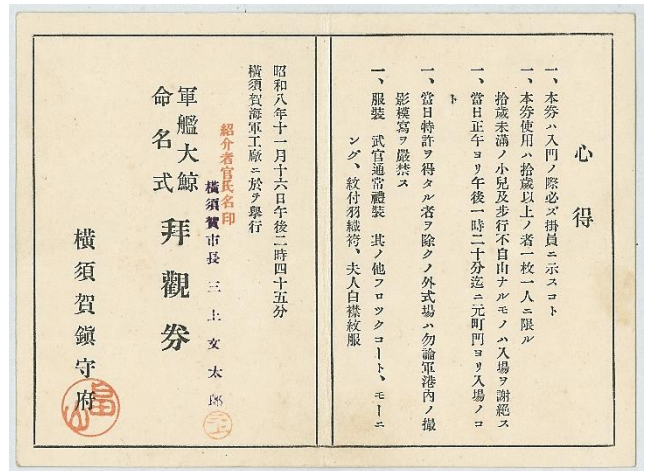 心得
一、本券ハ入門ノ際必ズ掛員ニ示スコト
一、本券使用ハ拾歳以上ノ者一枚一人ニ限ル
拾歳未滿ノ小兒及步行不自由ナルモノハ入場ヲ謝絶ス
一、當日正午ヨリ午後一時二十分迄ニ元町門ヨリ入場ノコ
ト
一、當日特許ヲ得タル者ヲ除クノ外式場ハ勿論軍港內ノ撮
影模寫ヲ嚴禁ス
一、服裝　武官通常禮裝　其ノ他フロックコート、モーニ
ング、紋付羽織袴、夫人白襟紋服
昭和八年十一月十六日午後二時四十五分
橫須賀海軍工廠ニ於テ擧行
紹介者官氏名印
橫須賀市長 三上文太郎
軍艦大鯨
命名式
拜觀券
橫須賀鎭守府